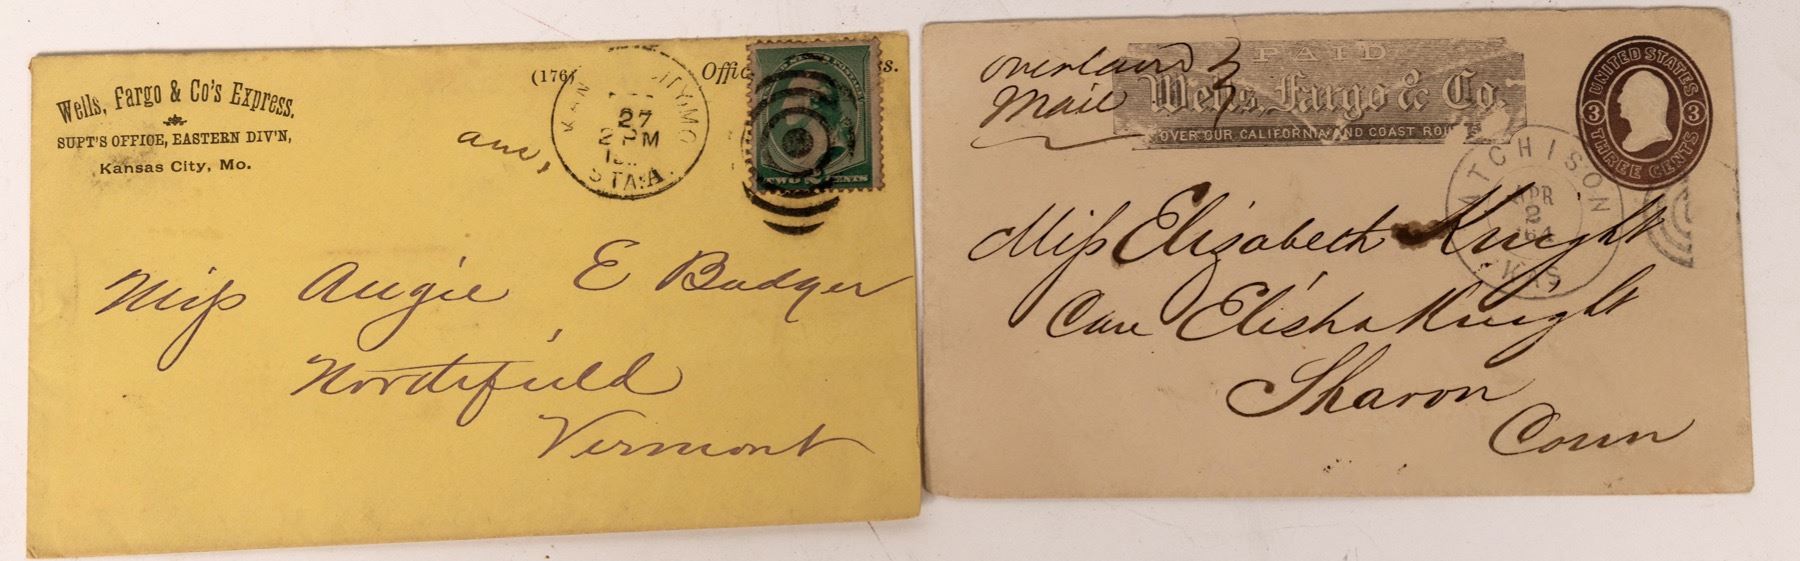 Wells, Fargo & Co's Express,
SUPT'S OFFICE, EASTERN DIV'N,
Kansas City, Mo.
(176)
Offic
ss.
ans,
27
2 PM
STA.A.
TWO CENTS
Miss Augie E Badger
Northfield
Vermont
Overland
Mail
PAID
Wells, Fargo & Co.
OVER OUR CALIFORNIA AND COAST ROU
UNITED STATES
3 3
THREE CENTS
ATCHISON
APR
2
'64
KAS
Miss Elizabeth Knight
Care Elisha Knight
Sharon
Conn